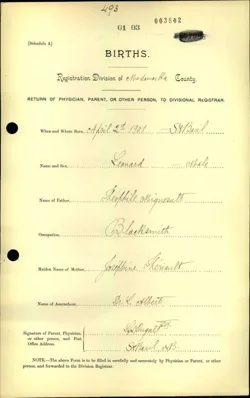 493
01 03
003802
[Schedule A]
BIRTHS.
Registration Division of Madawaska County.
RETURN OF PHYSICIAN, PARENT, OR OTHER PERSON, TO DIVISIONAL REGISTRAR.
When and Where Born, April 2d 1901 St Basil
Name and Sex, Leonard Male
Name of Father, Theophile
Occupation, Blacksmith
Maiden Name of Mother, Josephine Theriault
Name of Accoucheur, Dr. L. Albert
Signature of Parent, Physician or other person, and Post Office Address.
St Basil NB
NOTE.—The above Form is to be filled in carefully and accurately by Physician, Parent, or other person, and forwarded to the Division Registrar.